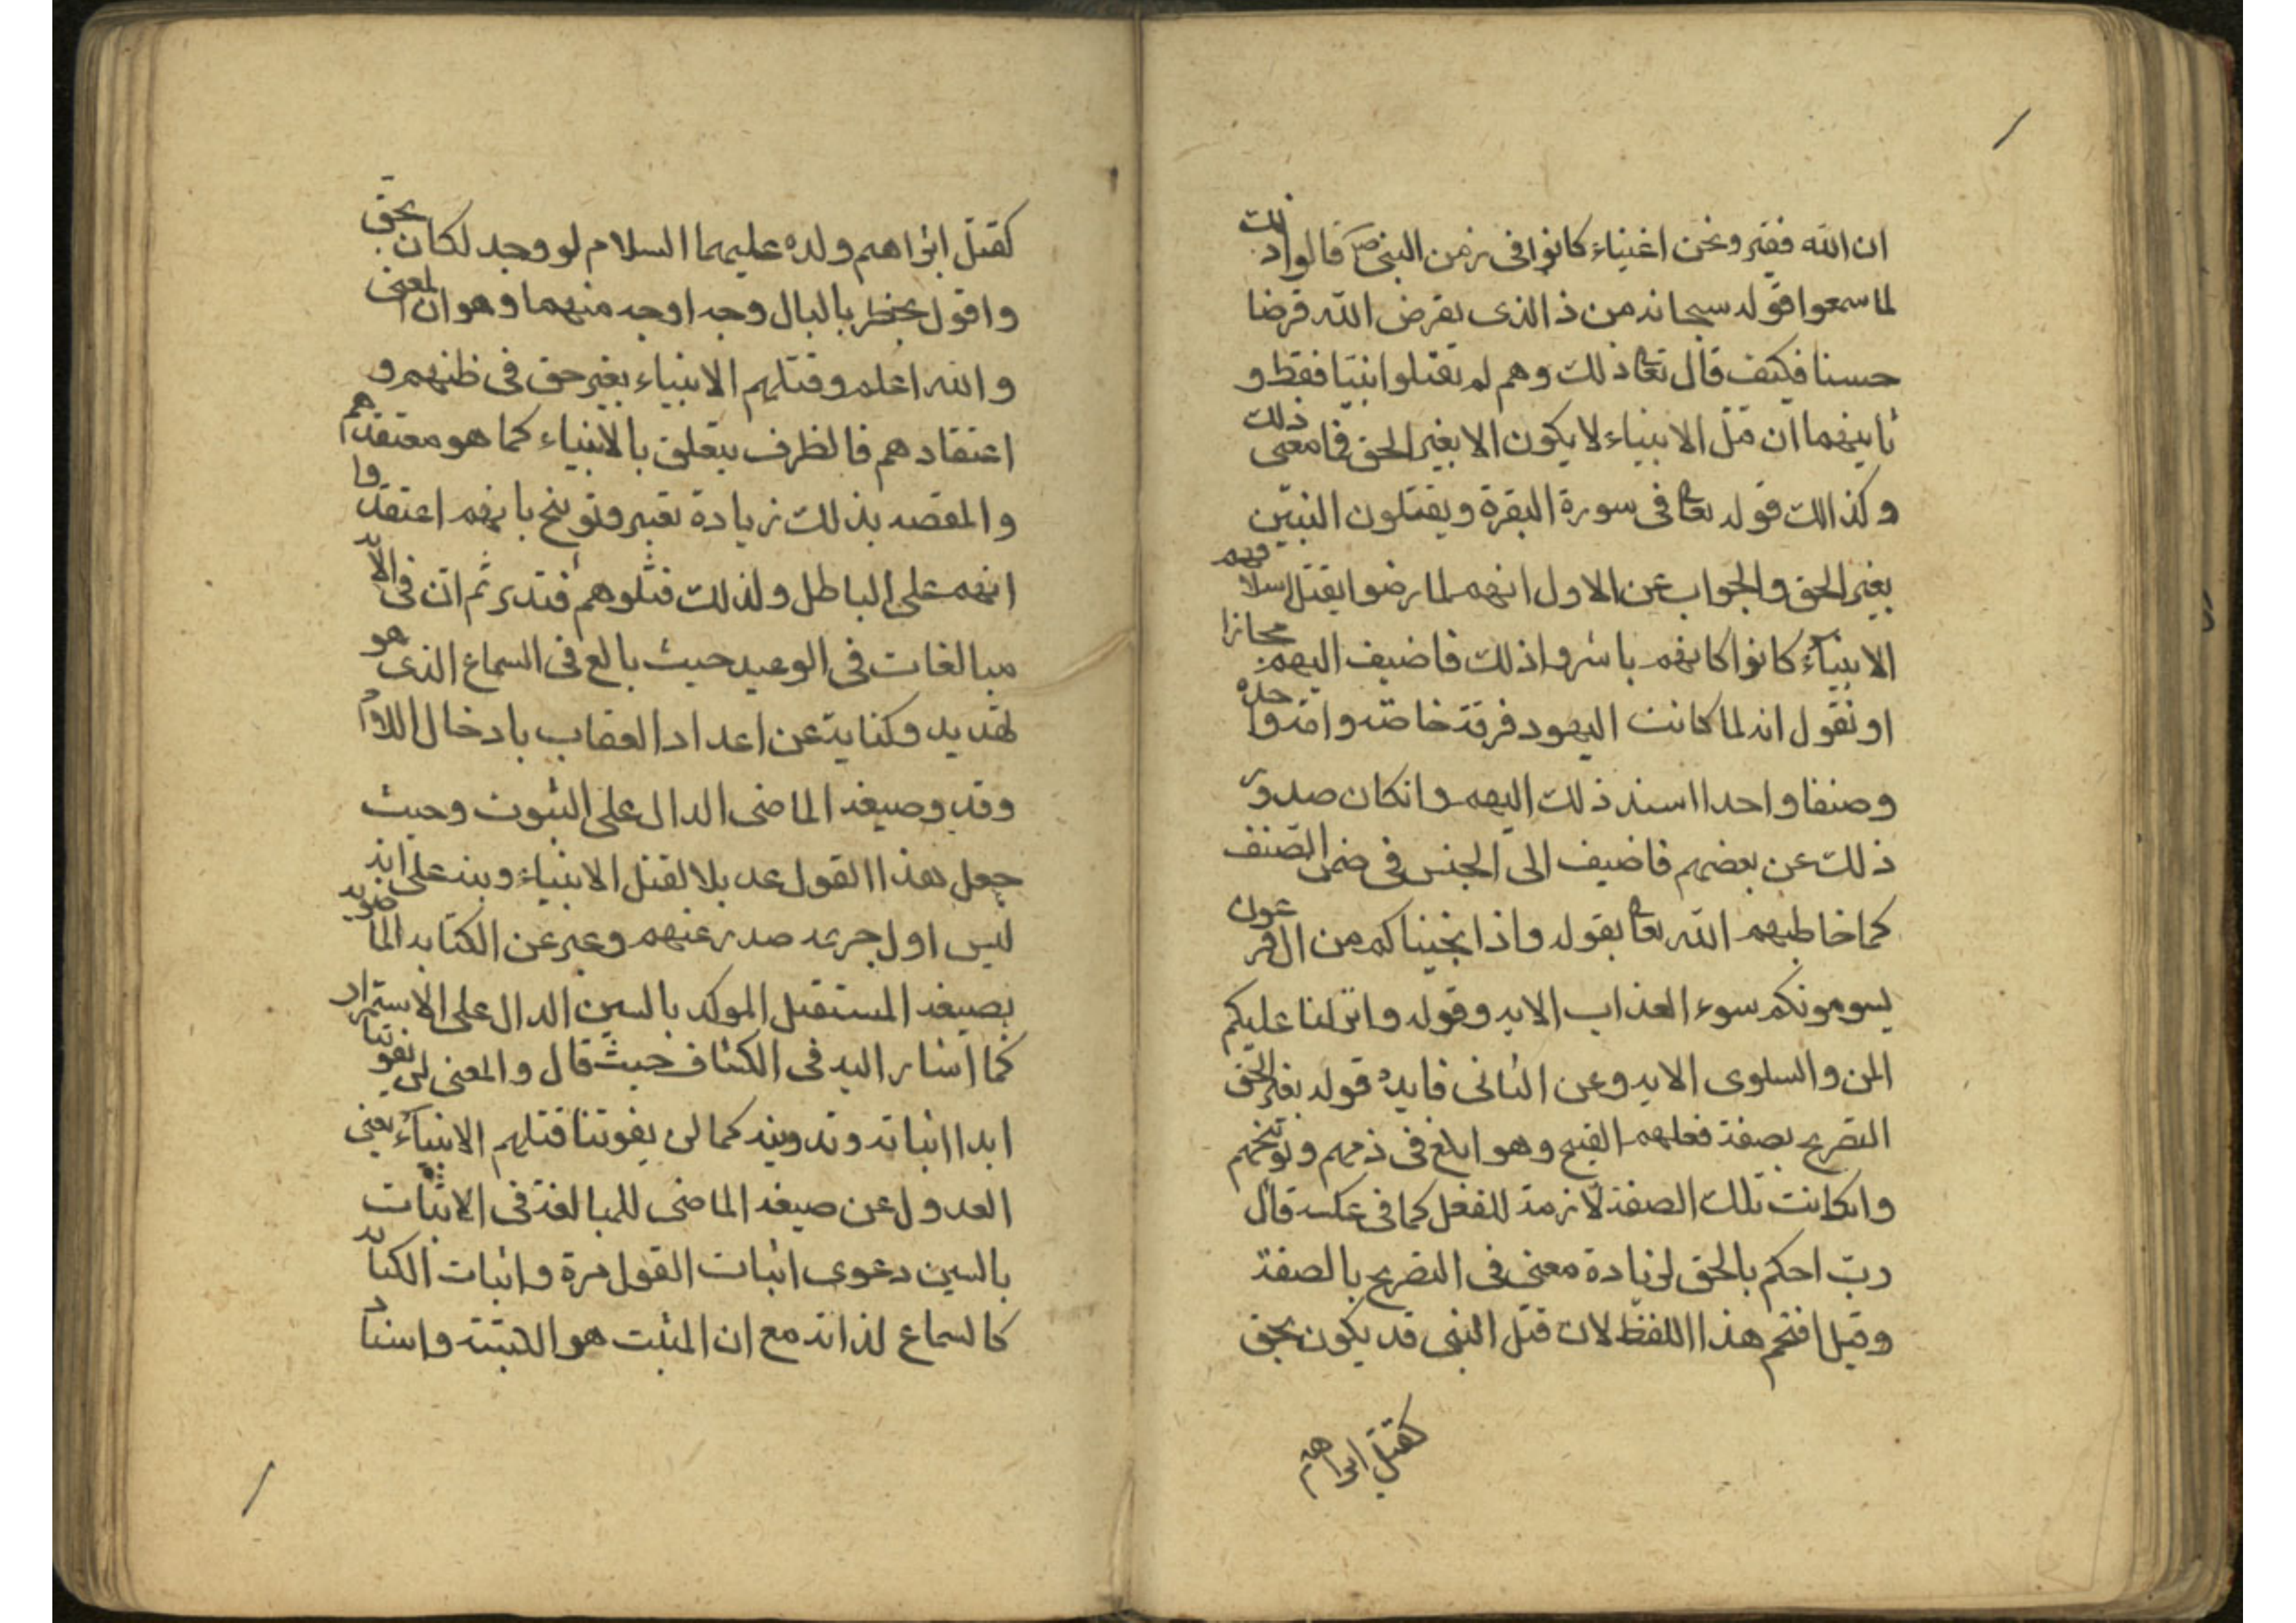 ان الله فقير ونحن اغنياء كانوا فى زمن النبى ص قالوا ذلك
لما سمعوا قوله سبحانه من ذا الذى يقرض الله قرضا
حسنا فكيف قال تعا ذلك وهم لم يقتلوا نبيا فقط و
ثانيهما ان قتل الانبياء لا يكون الا بغير الحق فما معنى ذلك
وكذالك قوله تعا فى سورة البقرة ويقتلون النبيّن
بغير الحق والجواب عن الاول انهم لما رضوا بقتل اسلافهم
الانبياء كانوا كانهم باشروا ذلك فاضيف اليهم مجازا
او نقول انه لما كانت اليهود فرقة خاصّة وامّة واحدة
وصنفا واحدا اسند ذلك اليهم وانكان صدور
ذلك عن بعضهم فاضيف الى الجنس فى ضمن الصّنف
كما خاطبهم الله تعا بقوله واذا نجيناكم من ال فرعون
يسومونكم سوء العذاب الايه وقوله وانزلنا عليكم
المن والسلوى الايه وعن الثانى فايدة قوله بغير الحق
التصريح بصفة فعلهم القبيح وهو ابلغ فى ذمهم وتوبيخهم
وانكانت تلك الصفة لازمة للفعل كما فى عكسه قال
ربّ احكم بالحق لزيادة معنى فى التصريح بالصفة
وقيل اقحم هذا اللفظ لان قتل النبى قد يكون بحق
كقتل ابراهيم
كقتل ابراهيم ولده عليهما السلام لو وجد لكان بحقّ
واقول يخطر بالبال وجه اوجه منهما وهو ان المعنى
والله اعلم وقتلهم الانبياء بغير حق فى ظنهم و
اعتقادهم فالظرف يتعلق بالانبياء كما هو معتقدهم
والمقصد بذلك زيادة تعيير وتوبيخ بانهم اعتقدوا
انهم على الباطل ولذلك قتلوهم فتدبر ثم ان فى الايه
مبالغات فى الوعيد حيث بالغ فى السماع الذى هو
تهديد وكناية عن اعداد العقاب بادخال اللام
وقد وصيغه الماضى الدال على الثبوت وحيث
جعل هذا القول عديلا لقتل الانبياء وبنه على انه
ليس اول جريمه صدر عنهم وعبر عن الكتابه الماضويه
بصيغه المستقبل الموكد بالسين الدال على الاستمرار
كما اشار اليه فى الكشاف حيث قال والمعنى لن يفوتنا
ابدا اثباته وتدوينه كما لن يفوتنا قتلهم الانبياء يعنى
العدول عن صيغه الماضى للمبالغة فى الاثبات
بالسين دعوى اثبات القول مرة واثبات الكتابه
كالسماع لذاته مع ان المثبت هو الكتبته واسناد